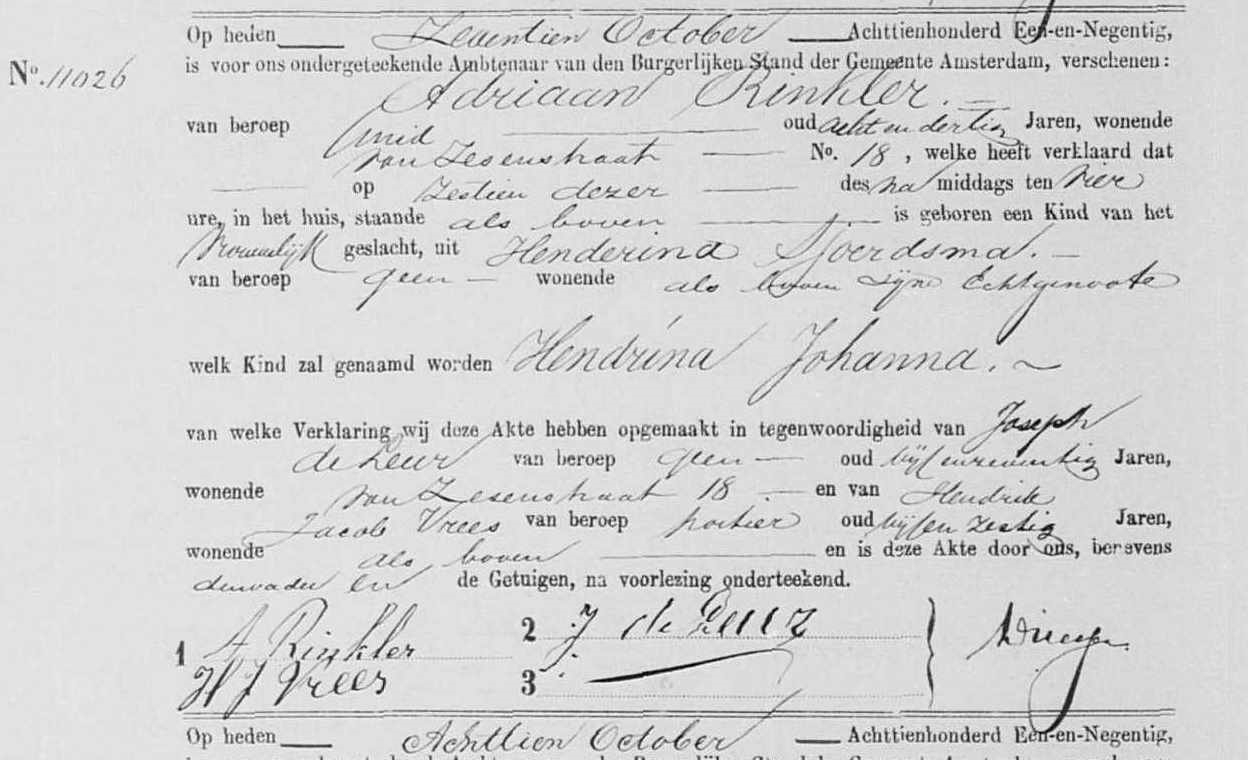 Op heden Zeventien October Achttienhonderd Een-en-Negentig,
No. 11026
is voor ons ondergeteekende Ambtenaar van den Burgerlijken Stand der Gemeente Amsterdam, verschenen:
Adriaan Rinkler.
van beroep Smid oud acht en dertig Jaren, wonende
van Zesenstraat No. 18, welke heeft verklaard dat
op Zestien dezer des na middags ten vier
ure, in het huis, staande als boven is geboren een Kind van het
Vrouwelijk geslacht, uit Henderina Sjoerdsma.
van beroep geen wonende als boven zijne Echtgenoote
welk Kind zal genaamd worden Hendrina Johanna.
van welke Verklaring wij deze Akte hebben opgemaakt in tegenwoordigheid van Joseph
de Leur van beroep geen oud vijf en zeventig Jaren,
wonende van Zesenstraat 18 en van Hendrik
Jacob Vrees van beroep portier oud vijf en zestig Jaren,
wonende als boven en is deze Akte door ons, benevens
den vader en de Getuigen, na voorlezing onderteekend.
1 A Rinkler 2 J de
H J Vrees 3
Op heden Achttien October Achttienhonderd Een-en-Negentig,